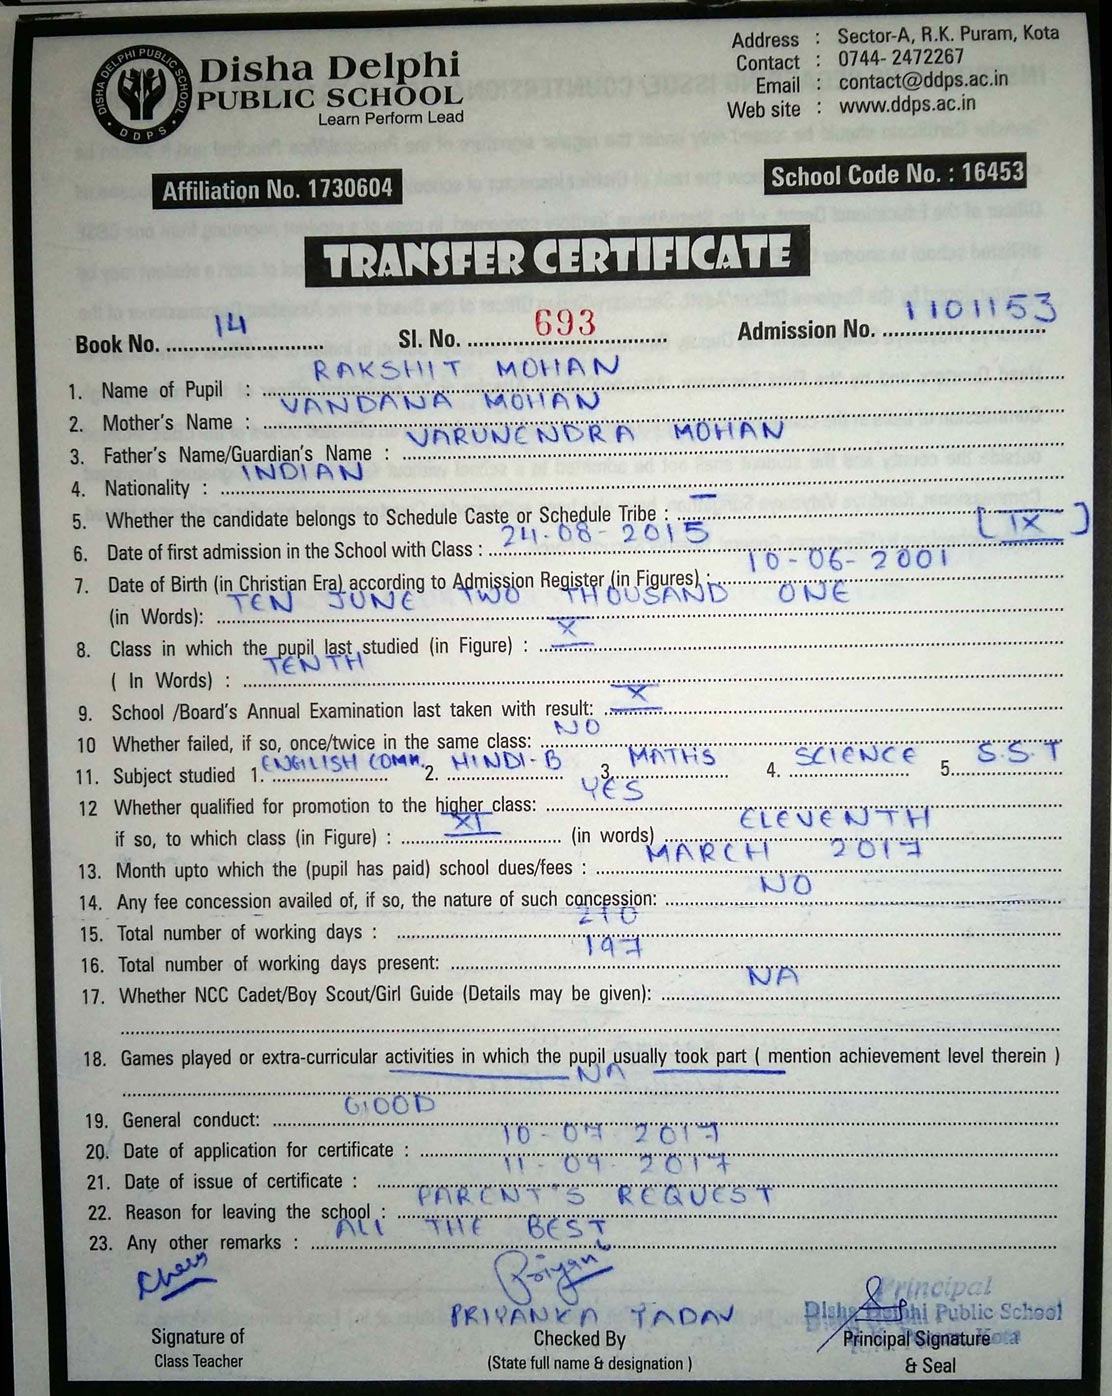 DISHA DELPHI PUBLIC SCHOOL
DDPS
Disha Delphi
PUBLIC SCHOOL
Learn Perform Lead
Address : Sector-A, R.K. Puram, Kota
Contact : 0744- 2472267
Email : contact@ddps.ac.in
Web site : www.ddps.ac.in
Affiliation No. 1730604
School Code No. : 16453
TRANSFER CERTIFICATE
Book No. 14 Sl. No. 693 Admission No. 1101153
1. Name of Pupil : RAKSHIT MOHAN
2. Mother's Name : VANDANA MOHAN
3. Father's Name/Guardian's Name : VARUNENDRA MOHAN
4. Nationality : INDIAN
5. Whether the candidate belongs to Schedule Caste or Schedule Tribe : —
6. Date of first admission in the School with Class : 24-08-2015 [IX]
7. Date of Birth (in Christian Era) according to Admission Register (in Figures) : 10-06-2001
(in Words): TEN JUNE TWO THOUSAND ONE
8. Class in which the pupil last studied (in Figure) : X
( In Words) : TENTH
9. School /Board's Annual Examination last taken with result: X
10 Whether failed, if so, once/twice in the same class: NO
11. Subject studied 1. ENGLISH COMM. 2. HINDI-B 3. MATHS 4. SCIENCE 5. S.S.T
12 Whether qualified for promotion to the higher class: YES
if so, to which class (in Figure) : XI (in words) ELEVENTH
13. Month upto which the (pupil has paid) school dues/fees : MARCH 2017
14. Any fee concession availed of, if so, the nature of such concession: NO
15. Total number of working days : 210
16. Total number of working days present: 197
17. Whether NCC Cadet/Boy Scout/Girl Guide (Details may be given): NA
18. Games played or extra-curricular activities in which the pupil usually took part ( mention achievement level therein )
NA
19. General conduct: GOOD
20. Date of application for certificate : 10-07-2017
21. Date of issue of certificate : 2017
22. Reason for leaving the school : PARENT'S REQUEST
23. Any other remarks : ALL THE BEST
PRIYANKA YADAV
Principal
Disha Delphi Public School
Kota
Signature of
Class Teacher
Checked By
(State full name & designation )
Principal Signature
& Seal